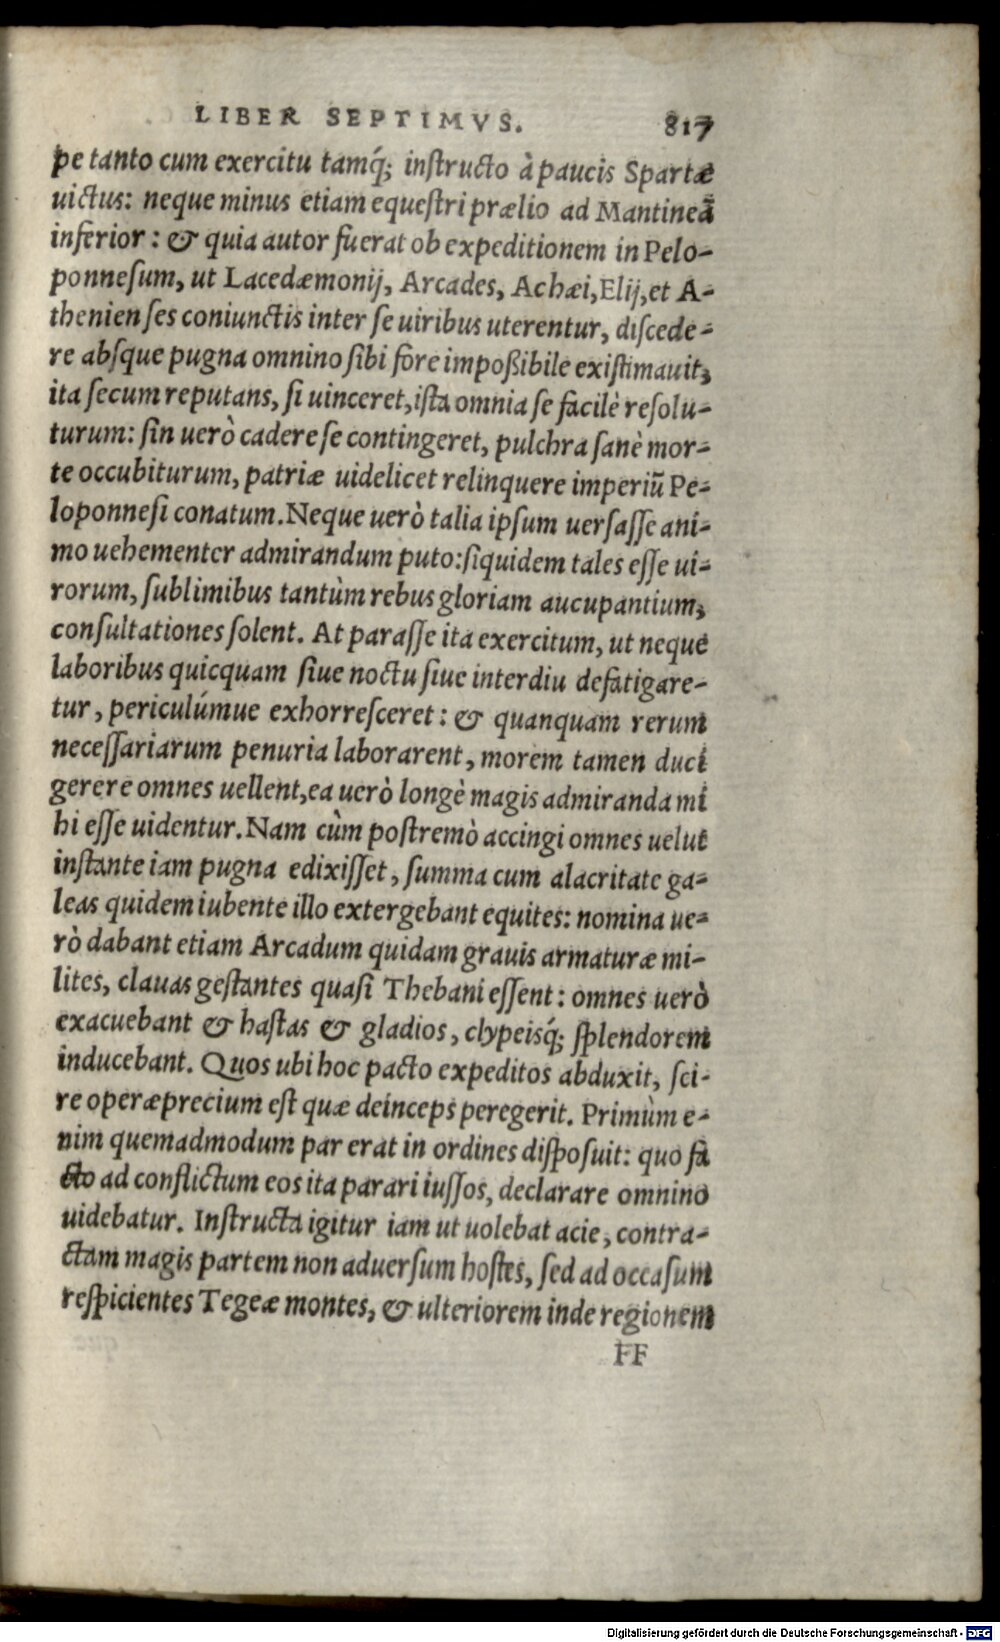 LIBER SEPTIMVS. 817
pe tanto cum exercitu tamq́; inſtructo à paucis Spartæ
uictus: neque minus etiam equeſtri prælio ad Mantineã
inferior: & quia autor fuerat ob expeditionem in Pelo-
ponneſum, ut Lacedæmonij, Arcades, Achæi, Elij, et A-
thenienſes coniunctis inter ſe uiribus uterentur, diſcede-
re abſque pugna omnino ſibi fore impoßibile exiſtimauit,
ita ſecum reputans, ſi uinceret, iſta omnia ſe facilè reſolu-
turum: ſin uerò cadere ſe contingeret, pulchra ſanè mor-
te occubiturum, patriæ uidelicet relinquere imperiũ Pe-
loponneſi conatum. Neque uerò talia ipſum uerſaſſe ani-
mo uehementer admirandum puto: ſiquidem tales eſſe ui-
rorum, ſublimibus tantùm rebus gloriam aucupantium,
conſultationes ſolent. At paraſſe ita exercitum, ut neque
laboribus quicquam ſiue noctu ſiue interdiu defatigare-
tur, periculúmue exhorreſceret: & quanquam rerum
neceſſariarum penuria laborarent, morem tamen duci
gerere omnes uellent, ea uerò longè magis admiranda mi
hi eſſe uidentur. Nam cùm poſtremò accingi omnes uelut
inſtante iam pugna edixiſſet, ſumma cum alacritate ga-
leas quidem iubente illo extergebant equites: nomina ue-
rò dabant etiam Arcadum quidam grauis armaturæ mi-
lites, clauas geſtantes quaſi Thebani eſſent: omnes uerò
exacuebant & haſtas & gladios, clypeisq́; ſplendorem
inducebant. Quos ubi hoc pacto expeditos abduxit, ſci-
re operæprecium eſt quæ deinceps peregerit. Primùm e-
nim quemadmodum par erat in ordines diſpoſuit: quo fa
cto ad conflictum eos ita parari iuſſos, declarare omnino
uidebatur. Inſtructa igitur iam ut uolebat acie, contra-
ctam magis partem non aduerſum hoſtes, ſed ad occaſum
reſpicientes Tegeæ montes, & ulteriorem inde regionem
FF
Digitalisierung gefördert durch die Deutsche Forschungsgemeinschaft - DFG